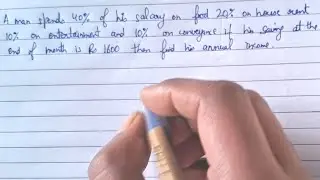 A man spends 40% of his salary on food 20% on house rent
10% on entertainment and 10% on conveyance if his saving at the
end of month is Rs 1600 then find his annual Income.